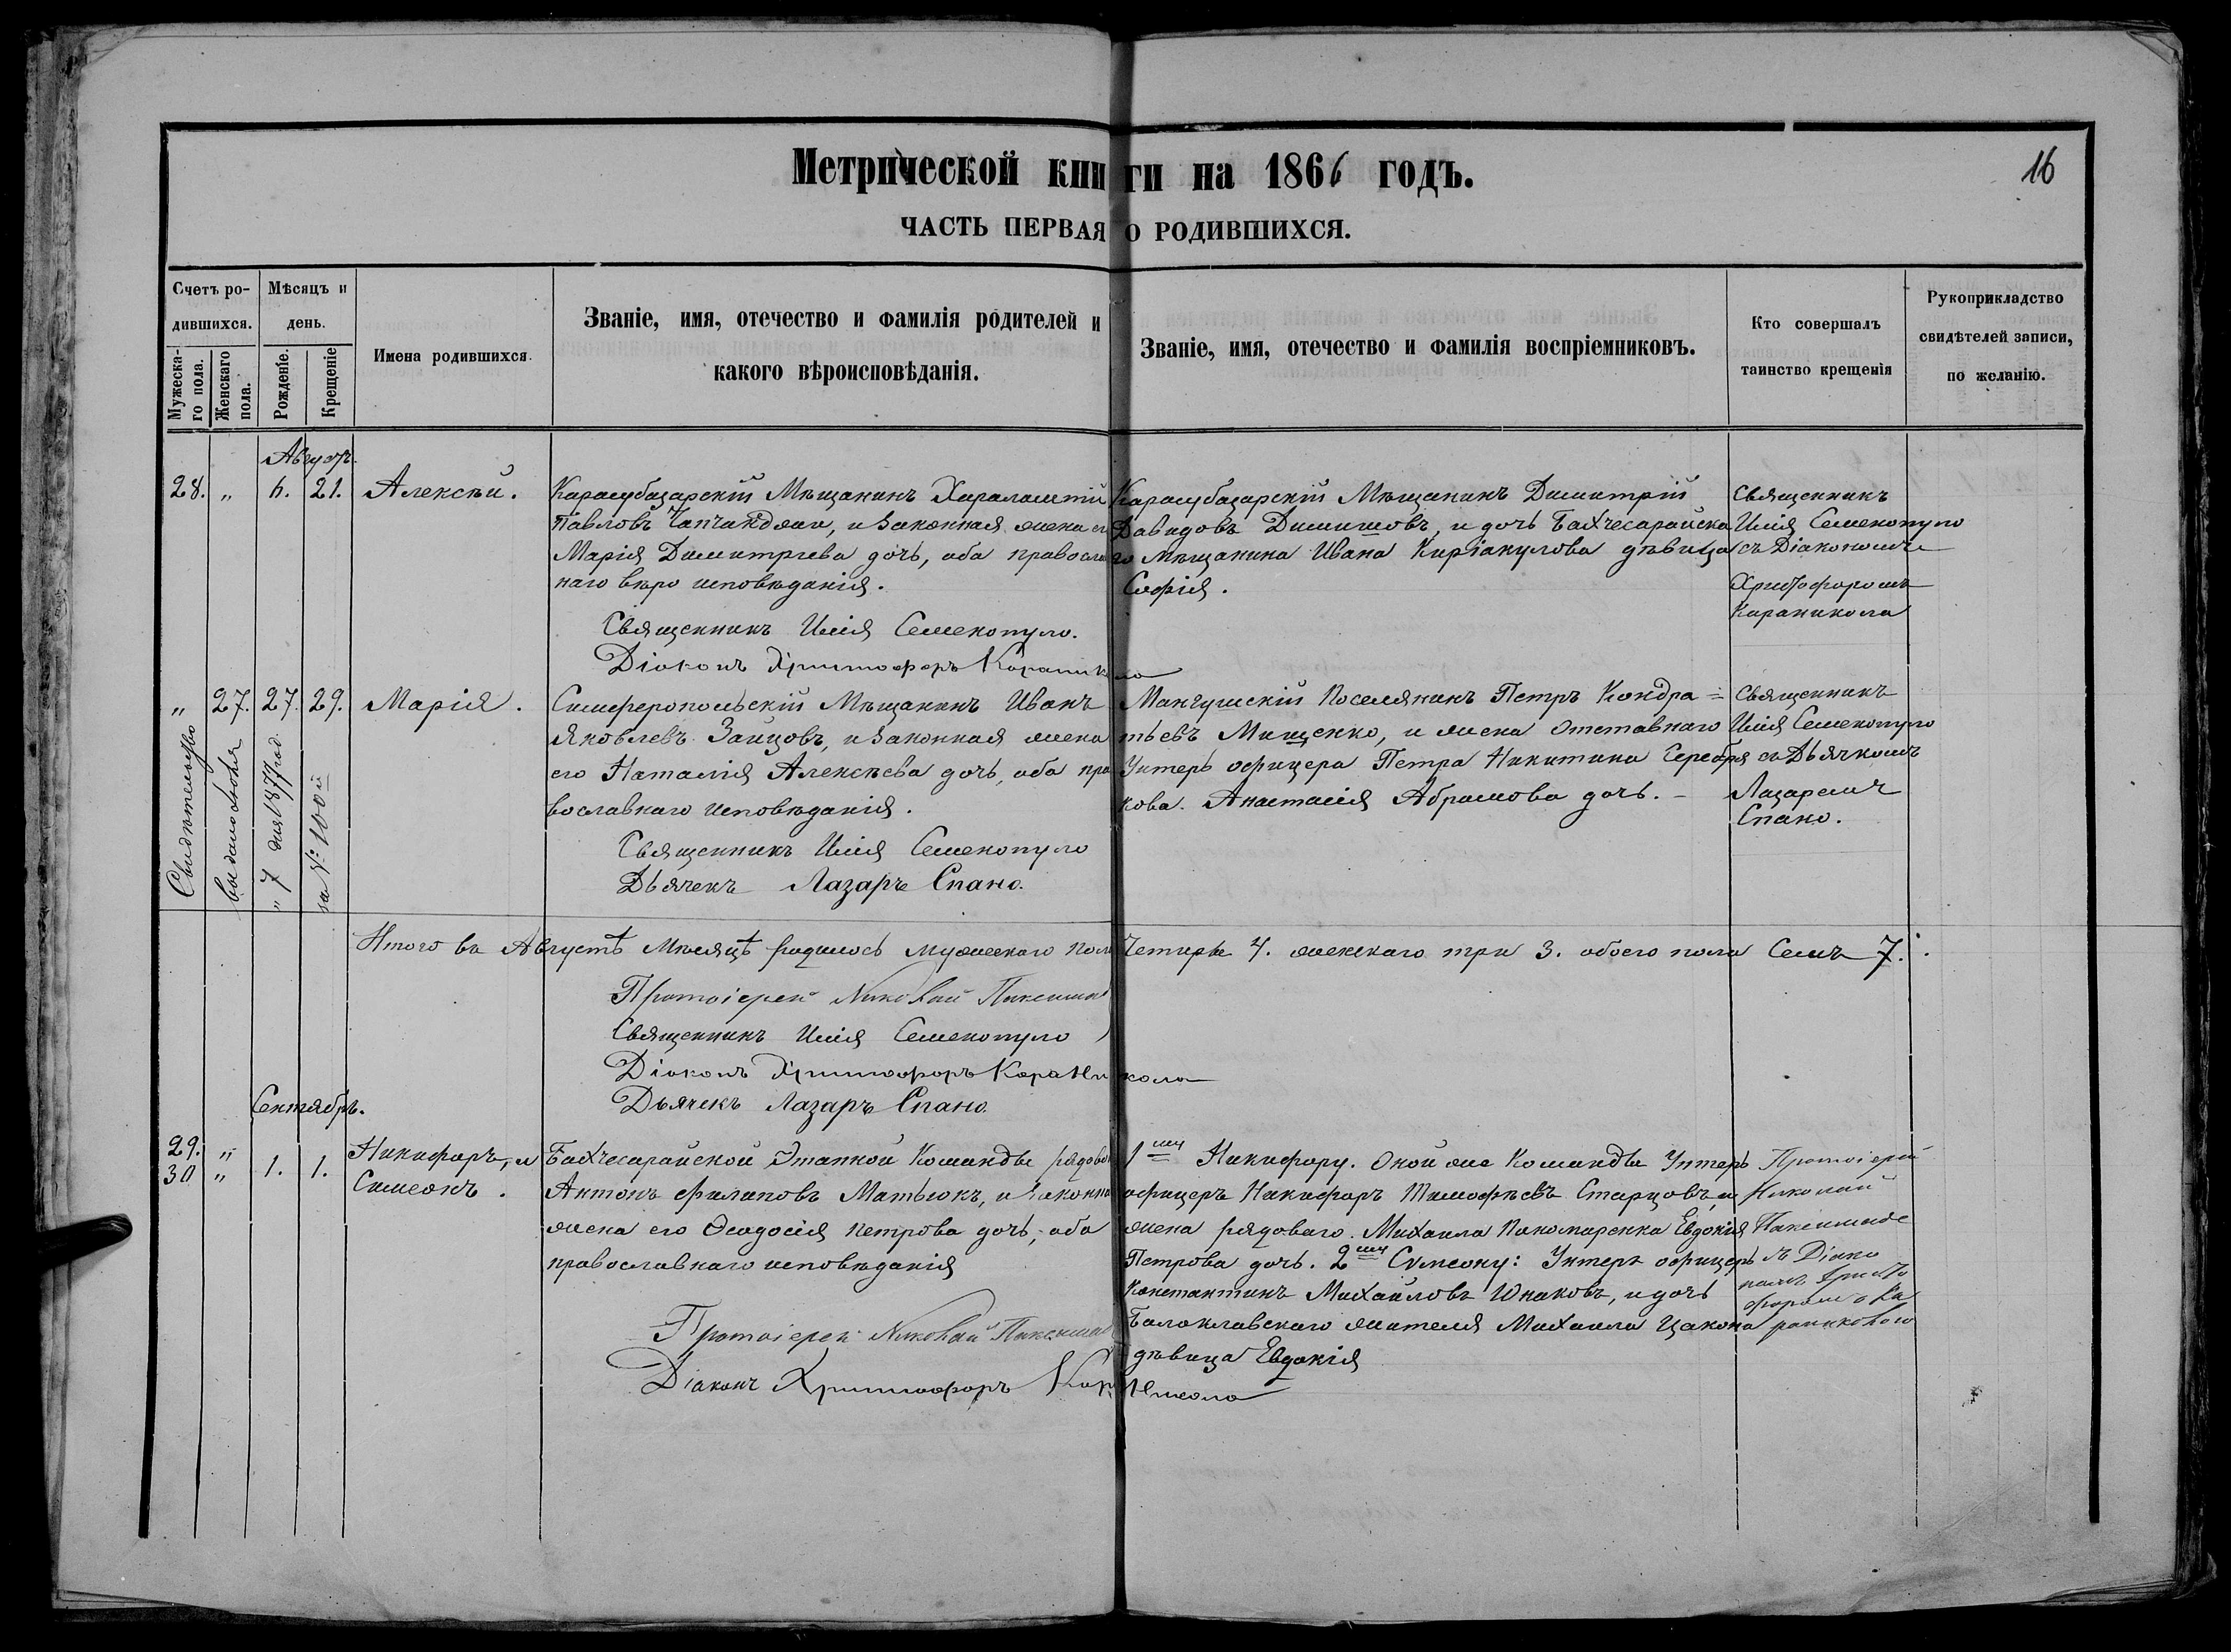 Метрической книги на 1866 годъ.
16
ЧАСТЬ ПЕРВАЯ О РОДИВШИХСЯ.
Счетъ ро-
дившихся.
Мужеска-
го пола.
Женскаго
пола.
Мѣсяцъ и
день.
Рожденіе.
Крещеніе
Имена родившихся.
Званіе, имя, отечество и фамилія родителей и
какого вѣроисповѣданія.
Званіе, имя, отечество и фамилія воспріемниковъ.
Кто совершалъ
таинство крещенія
Рукоприкладство
свидѣтелей записи,
по желанію.
Августъ.
28. " 6. 21. Алексѣй.
Карасубазарскій Мѣщанинъ Харалампій
Павловъ и законная жена его
Марія Димитріева дочь, оба православ
наго вѣро исповѣданія.
Священникъ Илія Семенопуло.
Діаконъ Христофоръ Караникола
Карасубазарскій Мѣщанинъ Димитрій
Давидовъ Димишовъ, и дочь Бахчесарайска
го Мѣщанина Ивана Киріакулова дѣвица
Софія.
Священникъ
Илія Семенопуло
съ Діакономъ
Христофоромъ
Караникола
" 27. 27. 29. Марія.
Симферопольскій Мѣщанинъ Иванъ
Яковлевъ Зайцовъ, и законная жена
его Наталія Алексѣева дочь, оба пра
вославнаго исповѣданія.
Священникъ Илія Семенопуло
Дьячекъ Лазаръ Спано.
Мангушскій Поселянинъ Петръ Кондра=
тьевъ Мищенко, и жена отставнаго
Унтеръ офицера Петра Никитина Серебря
кова. Анастасія Абрамова дочь. -
Священникъ
Илія Семенопуло
съ Дьячкомъ
Лазаремъ
Спано.
Свидѣтельство
выдано
" 7 дня 1877 год.
за №: 100й
Итого въ Августѣ Мѣсяцѣ родилось мужескаго пола Четыре 4. женскаго три 3. обоего пола Семъ 7.
Протоіерей Николай
Священникъ Илія Семенопуло
Діаконъ Христофоръ Караникола
Дьячекъ Лазаръ Спано.
Сентябрь.
29. "
30 " 1. 1.
Никифоръ, и
Симеонъ.
Бахчесарайской Этапной Команды рядовой
Антонъ Филиповъ Матьюкъ, и законная
жена его Ѳеодосія Петрова дочь, оба
православнаго исповѣданія
Протоіерей Николай
Діаконъ Христофоръ Караникола
1му Никифору. Оной же Команды Унтеръ
офицеръ Никифоръ Тимофѣевъ Старцовъ, и
жена рядоваго Михаила Пономаренка Евдокія
Петрова дочь. 2му Сѵмеону: Унтеръ офицеръ
Константинъ Михайловъ Юнаковъ, и дочь
Балоклавскаго жителя Михаила Цакона
дѣвица Евдокія
Протоіерей
Николай
съ Діако
номъ Христо
форомъ Ка